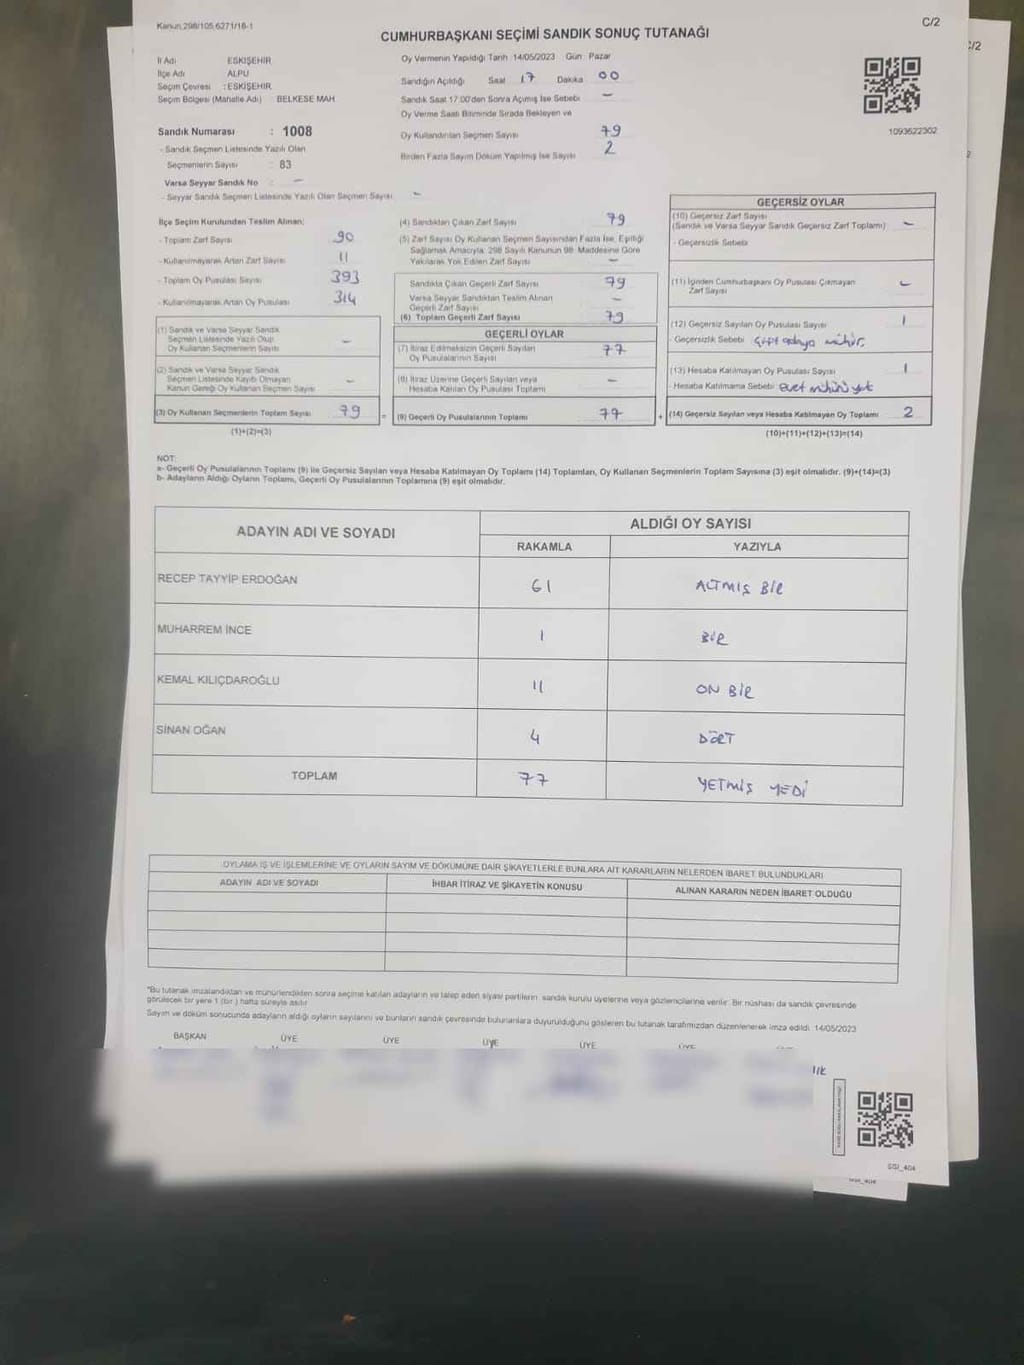 Kanun 298/105,6271/16-1
C/2
CUMHURBAŞKANI SEÇİMİ SANDIK SONUÇ TUTANAĞI
C/2
İl Adı ESKİŞEHİR
İlçe Adı ALPU
Seçim Çevresi : ESKİŞEHİR
Seçim Bölgesi (Mahalle Adı) BELKESE MAH
Sandık Numarası : 1008
- Sandık Seçmen Listesinde Yazılı Olan
Seçmenlerin Sayısı : 83
Varsa Seyyar Sandık No : -
- Seyyar Sandık Seçmen Listesinde Yazılı Olan Seçmen Sayısı -
Oy Vermenin Yapıldığı Tarih 14/05/2023 Gün Pazar
Sandığın Açıldığı Saat 17 Dakika 00
Sandık Saat 17:00'den Sonra Açılmış İse Sebebi -
Oy Verme Saati Bitiminde Sırada Bekleyen ve
Oy Kullandırılan Seçmen Sayısı 79
Birden Fazla Sayım Döküm Yapılmış İse Sayısı 2
1093622302
İlçe Seçim Kurulundan Teslim Alınan:
- Toplam Zarf Sayısı 90
- Kullanılmayarak Artan Zarf Sayısı 11
- Toplam Oy Pusulası Sayısı 393
- Kullanılmayarak Artan Oy Pusulası 314
(1) Sandık ve Varsa Seyyar Sandık
Seçmen Listesinde Yazılı Olup
Oy Kullanan Seçmenlerin Sayısı -
(2) Sandık ve Varsa Seyyar Sandık
Seçmen Listesinde Kayıtlı Olmayan
Kanun Gereği Oy Kullanan Seçmen Sayısı -
(3) Oy Kullanan Seçmenlerin Toplam Sayısı 79 =
(1)+(2)=(3)
(4) Sandıktan Çıkan Zarf Sayısı 79
(5) Zarf Sayısı Oy Kullanan Seçmen Sayısından Fazla İse, Eşitliği
Sağlamak Amacıyla, 298 Sayılı Kanunun 98. Maddesine Göre
Yakılarak Yok Edilen Zarf Sayısı -
Sandıkta Çıkan Geçerli Zarf Sayısı 79
Varsa Seyyar Sandıktan Teslim Alınan
Geçerli Zarf Sayısı -
(6) Toplam Geçerli Zarf Sayısı 79
GEÇERLİ OYLAR
(7) İtiraz Edilmeksizin Geçerli Sayılan
Oy Pusulalarının Sayısı 77
(8) İtiraz Üzerine Geçerli Sayılan veya
Hesaba Katılan Oy Pusulası Toplamı -
(9) Geçerli Oy Pusulalarının Toplamı 77 +
GEÇERSİZ OYLAR
(10) Geçersiz Zarf Sayısı
(Sandık ve Varsa Seyyar Sandık Geçersiz Zarf Toplamı) -
- Geçersizlik Sebebi
(11) İçinden Cumhurbaşkanı Oy Pusulası Çıkmayan
Zarf Sayısı -
(12) Geçersiz Sayılan Oy Pusulası Sayısı 1
- Geçersizlik Sebebi mühür.
(13) Hesaba Katılmayan Oy Pusulası Sayısı 1
- Hesaba Katılmama Sebebi evet mühürü yok
(14) Geçersiz Sayılan veya Hesaba Katılmayan Oy Toplamı 2
(10)+(11)+(12)+(13)=(14)
NOT:
a- Geçerli Oy Pusulalarının Toplamı (9) ile Geçersiz Sayılan veya Hesaba Katılmayan Oy Toplamı (14) Toplamları, Oy Kullanan Seçmenlerin Toplam Sayısına (3) eşit olmalıdır. (9)+(14)=(3)
b- Adayların Aldığı Oyların Toplamı, Geçerli Oy Pusulalarının Toplamına (9) eşit olmalıdır.
ADAYIN ADI VE SOYADI ALDIĞI OY SAYISI
RAKAMLA YAZIYLA
RECEP TAYYİP ERDOĞAN 61 ALTMIŞ BİR
MUHARREM İNCE 1 BİR
KEMAL KILIÇDAROĞLU 11 ON BİR
SİNAN OĞAN 4 DÖRT
TOPLAM 77 YETMİŞ YEDİ
OYLAMA İŞ VE İŞLEMLERİNE VE OYLARIN SAYIM VE DÖKÜMÜNE DAİR ŞİKAYETLERLE BUNLARA AİT KARARLARIN NELERDEN İBARET BULUNDUKLARI
ADAYIN ADI VE SOYADI İHBAR İTİRAZ VE ŞİKAYETİN KONUSU ALINAN KARARIN NEDEN İBARET OLDUĞU
*Bu tutanak imzalandıktan ve mühürlendikten sonra seçime katılan adayların ve talep eden siyasi partilerin sandık kurulu üyelerine veya gözlemcilerine verilir. Bir nüshası da sandık çevresinde
görülecek bir yere 1 (bir ) hafta süreyle asılır
Sayım ve döküm sonucunda adayların aldığı oyların sayılarını ve bunların sandık çevresinde bulunanlara duyurulduğunu gösteren bu tutanak tarafımızdan düzenlenerek imza edildi. 14/05/2023
BAŞKAN ÜYE ÜYE ÜYE ÜYE ÜYE
SGI_404
SGI_404